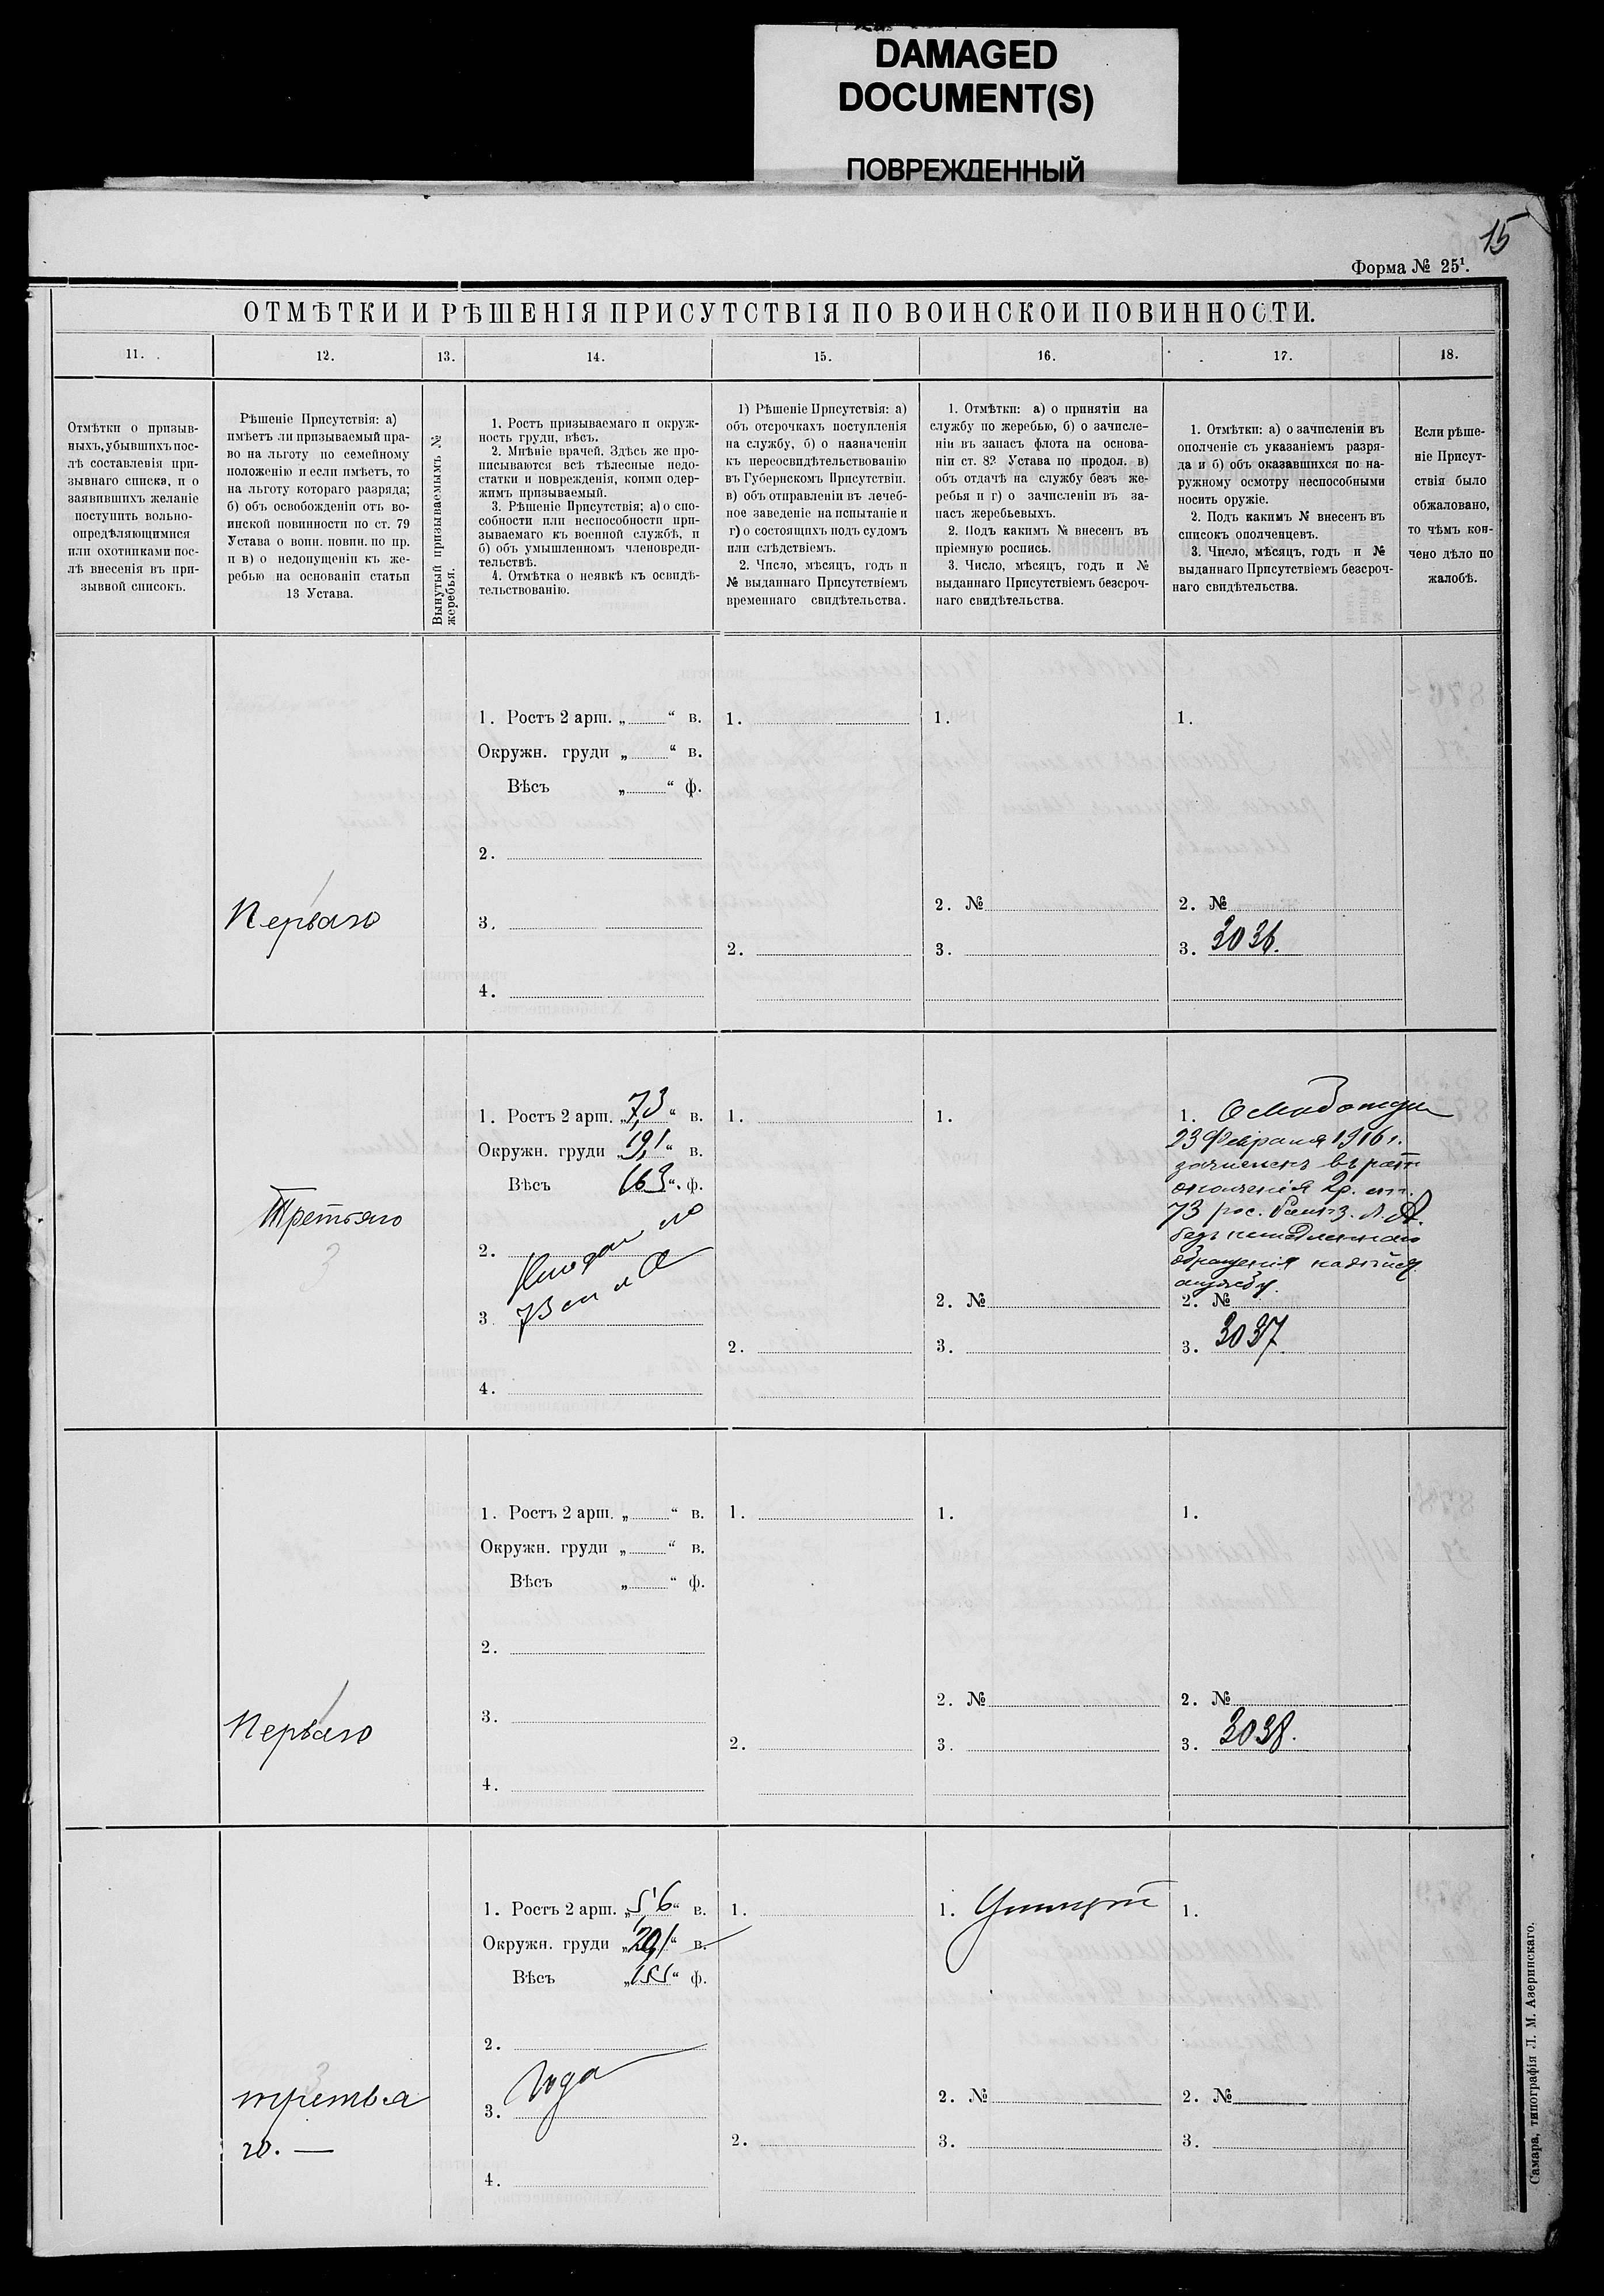 DAMAGED
DOCUMENT(S)
ПОВРЕЖДЕННЫЙ
15
Форма № 25¹.
ОТМѢТКИ И РѢШЕНІЯ ПРИСУТСТВІЯ ПО ВОИНСКОИ ПОВИННОСТИ.
11.
12.
13.
14.
15.
16.
17.
18.
Отмѣтки о призыв-
ныхъ, убывшихъ пос-
лѣ составленія при-
зывнаго списка, и о
заявившихъ желаніе
поступить вольно-
опредѣляющимися
или охотниками пос-
лѣ внесенія въ при-
зывной списокъ.
Рѣшеніе Присутствія: а)
имѣетъ ли призываемый пра-
во на льготу по семейному
положенію и если имѣетъ, то
на льготу котораго разряда;
б) объ освобожденіи отъ во-
инской повинности по ст. 79
Устава о воин. повин. по пр.
и в) о недопущеніи къ же-
ребью на основаніи статьи
13 Устава.
Вынутый призываемымъ №
жеребья.
1. Ростъ призываемаго и окруж-
ность груди, вѣсъ.
2. Мнѣніе врачей. Здѣсь же про-
писываются всѣ тѣлесные недо-
статки и поврежденія, коими одер-
жимъ призываемый.
3. Рѣшеніе Присутствія; а) о спо-
собности или неспособности при-
зываемаго къ военной службѣ, и
б) объ умышленномъ членовреди-
тельствѣ.
4. Отмѣтка о неявкѣ къ освидѣ-
тельствованію.
1) Рѣшеніе Присутствія: а)
объ отсрочкахъ поступленія
на службу, б) о назначеніи
къ переосвидѣтельствованію
въ Губернскомъ Присутствіи.
в) объ отправленіи въ лечеб-
ное заведеніе на испытаніе и
г) о состоящихъ подъ судомъ
или слѣдствіемъ.
2. Число, мѣсяцъ, годъ и
№ выданнаго Присутствіемъ
временнаго свидѣтельства.
1. Отмѣтки: а) о принятіи на
службу по жеребью, б) о зачисле-
ніи въ запасъ флота на основа-
ніи ст. 82 Устава по продол. в)
объ отдачѣ на службу безъ же-
ребья и г) о зачисленіи въ за-
пасъ жеребьевыхъ.
2. Подъ какимъ № внесенъ въ
пріемную роспись.
3. Число, мѣсяцъ, годъ и №
выданнаго Присутствіемъ безсроч-
наго свидѣтельства.
1. Отмѣтки: а) о зачисленіи въ
ополченіе съ указаніемъ разря-
да и б) объ оказавшихся по на-
ружному осмотру неспособными
носить оружіе.
2. Подъ какимъ № внесенъ въ
списокъ ополченцевъ.
3. Число, мѣсяцъ, годъ и №
выданнаго Присутствіемъ безсроч-
наго свидѣтельства.
Если рѣше-
ніе Присут-
ствія было
обжаловано,
то чѣмъ кон-
чено дѣло по
жалобѣ.
Перваго
1. Ростъ 2 арш. „ “ в.
Окружн. груди „ “ в.
Вѣсъ „ “ ф.
2.
3.
4.
1.
2.
1.
2. №
3.
1.
2. №
3. 3036.
Третьяго
3
1. Ростъ 2 арш. „7,3“ в.
Окружн. груди „19,1“ в.
Вѣсъ 163“ ф.
2.
3
4.
1.
2.
1.
2. №
3.
1.
23 Февраля 1916 г.
зачисленъ въ рат.
ополченія 2р.
73 рос.
безъ немедленнаго
обращенія на дѣйст.
службу.
2. №
3. 3037
Перваго
1. Ростъ 2 арш. „ “ в.
Окружн. груди „ “ в.
Вѣсъ „ “ ф.
2.
3.
4.
1.
2.
1.
2. №
3.
1.
2. №
3. 3038.
третья
го. —
1. Ростъ 2 арш. „5,6“ в.
Окружн. груди „20,1“ в.
Вѣсъ „155“ ф.
2.
3. Года
4.
1.
2.
1.
2. №
3.
1.
2. №
3.
Самара, типографія Л. М. Азеринскаго.